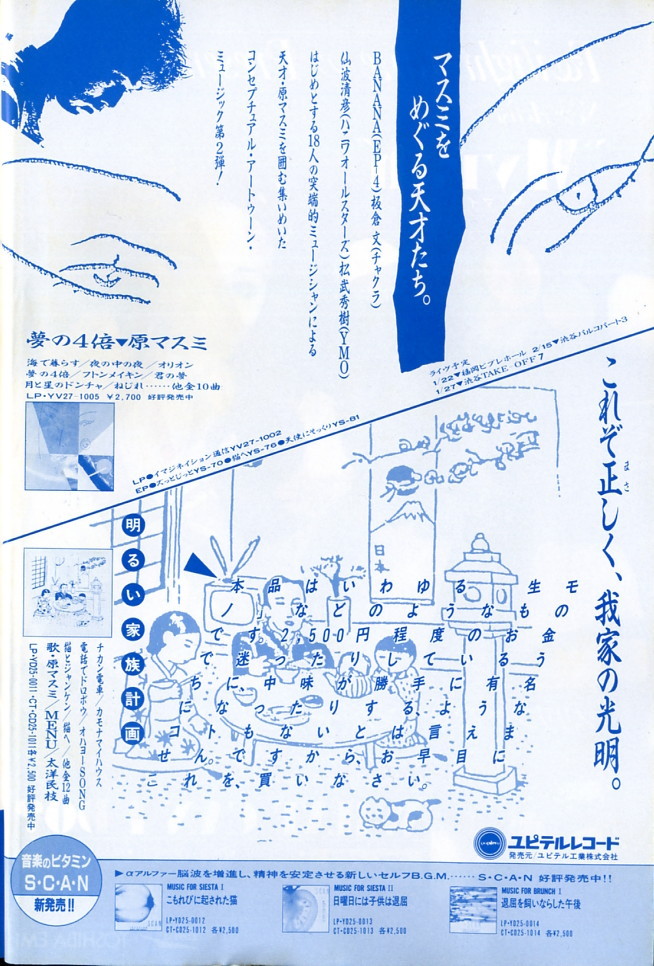 マスミを
めぐる天才たち。
BANANA(EP-4)板倉 文(チャクラ)
仙波清彦(ハニワオールスターズ)松武秀樹(YMO)
はじめとする18人の突端的ミュージシャンによる
天才・原マスミを囲む集いめいた
コンセプチュアル・アートゥーン・
ミュージック第2弾!
夢の4倍▼原マスミ
海で暮らす/夜の中の夜/オリオン
夢の4倍/フトンメイキン/君の夢
月と星のドンチャ/ねじれ……他全10曲
LP・YV27-1005 ¥2,700 好評発売中
ライヴ予定
1/22▼福岡ビブレホール 2/15▼渋谷パルコパート3
1/27▼渋谷TAKE OFF7
LP●イマジネイション通信YV27-1002
EP●ズットじっとYS-70●猫へYS-76●天使にそっくりYS-81
これぞ正しく、我家の光明。
まさ
日本
明るい家族計画
本品はいわゆる、生モ
ノ」などのようなもの
です。2,500円程度のお金
で迷ったりしているう
ちに、中味が勝手に有名
になったりするような
コトもないとは言えま
せん。ですから、お早目に
これを、買いなさい。
チカン電車/カモナマイハウス
電話でドロボウ/オハヨーSONG
猫とジャンケン/猫へ/他全12曲
歌・原マスミ/MENU/太洋民枝
LP・YD25-0011・CT・CD25-1011各¥2,500 好評発売中
ユピテルレコード
発売元/ユピテル工業株式会社
音楽のビタミン
S・C・A・N
新発売!!
▶αアルファー脳波を増進し、精神を安定させる新しいセルフB.G.M.……S・C・A・N 好評発売中!!
MUSIC FOR SIESTA I
こもれびに起された猫
LP・YD25-0012
CT・CD25-1012 各¥2,500
MUSIC FOR SIESTA II
日曜日には子供は退屈
LP・YD25-0013
CT・CD25-1013 各¥2,500
MUSIC FOR BRUNCH I
退屈を飼いならした午後
LP・YD25-0014
CT・CD25-1014 各¥2,500